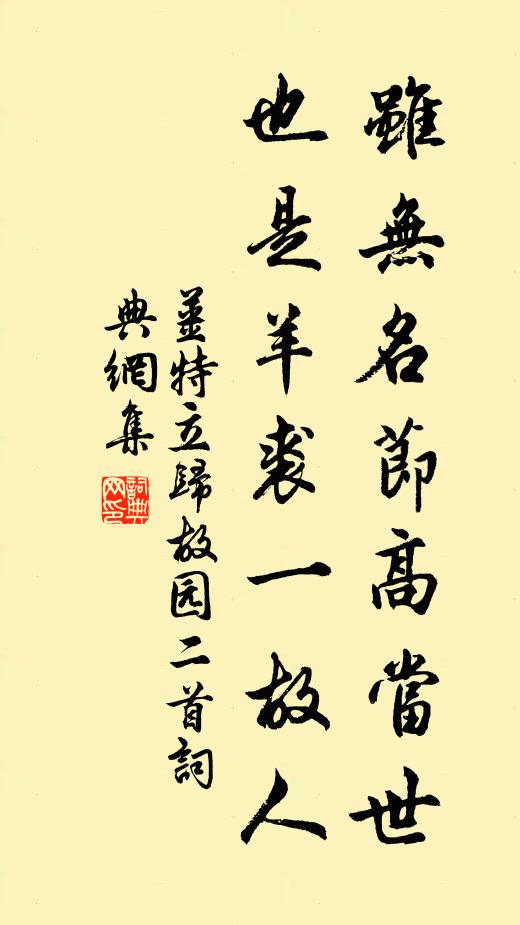 雖無名節高當世
也是羊裘一故人
姜特立歸故园二首詞
典網集
詞典
网印